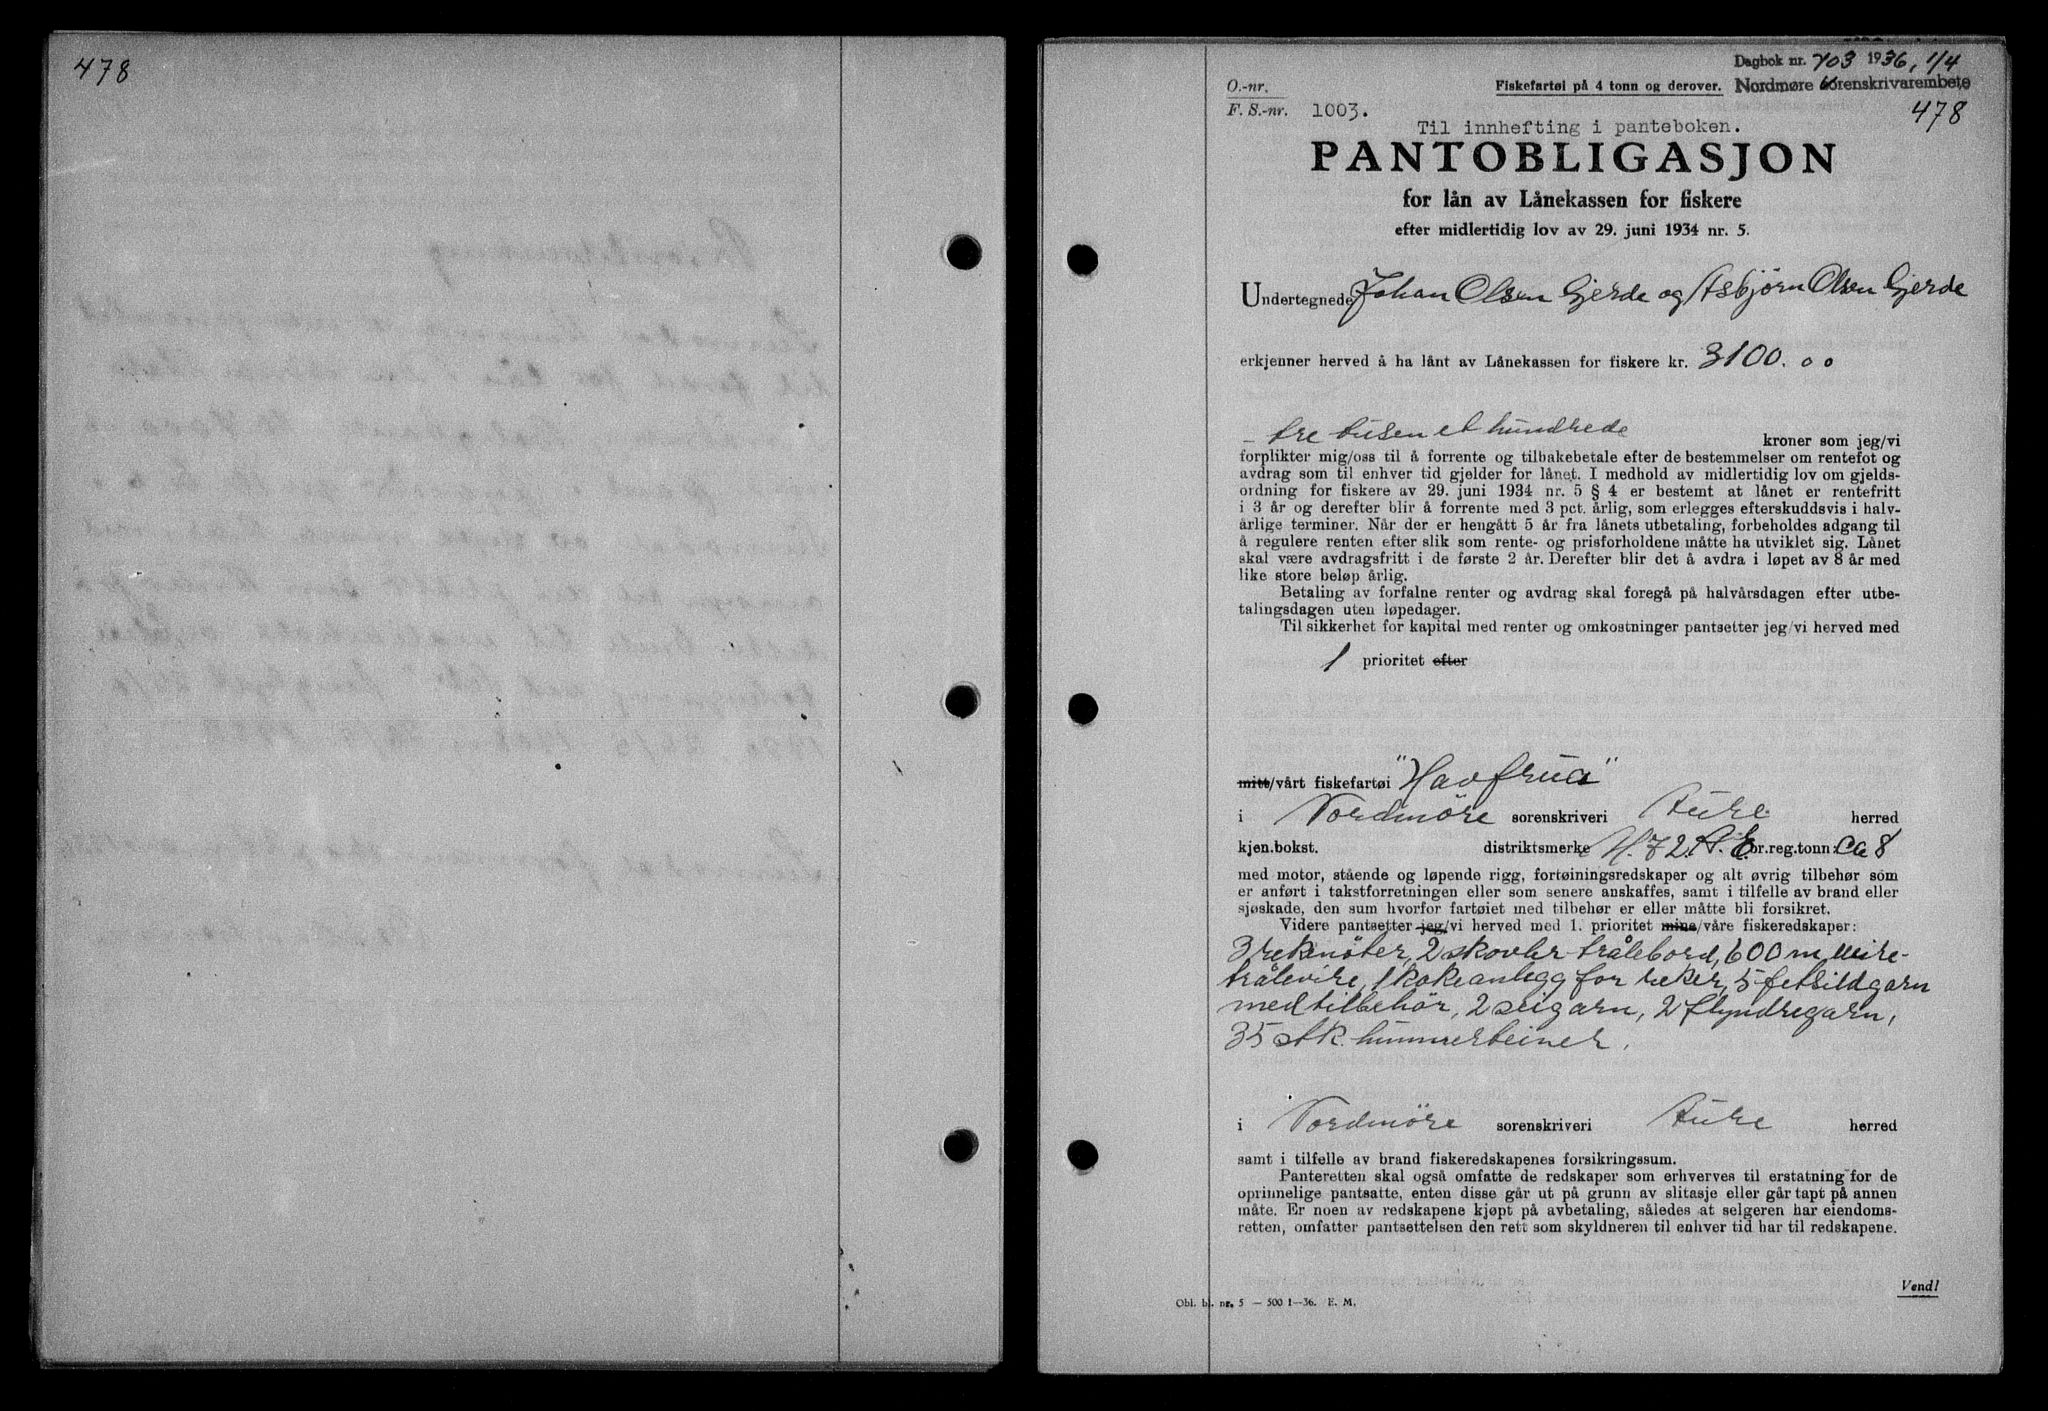 478
Dagbok nr. 703 1936, 1/4
O.-nr.
Fiskefartøi på 4 tonn og derover.
Nordmøre sorenskrivarembete
F. S.-nr. 1003.
478
Til innhefting i panteboken.
PANTOBLIGASJON
for lån av Lånekassen for fiskere
efter midlertidig lov av 29. juni 1934 nr. 5.
Undertegnede Johan Olsen Gjerde og Asbjørn Olsen Gjerde
erkjenner herved å ha lånt av Lånekassen for fiskere kr. 3100.00
- tre tusen et hundrede kroner som jeg/vi
forplikter mig/oss til å forrente og tilbakebetale efter de bestemmelser om rentefot og
avdrag som til enhver tid gjelder for lånet. I medhold av midlertidig lov om gjelds-
ordning for fiskere av 29. juni 1934 nr. 5 § 4 er bestemt at lånet er rentefritt
i 3 år og derefter blir å forrente med 3 pct. årlig, som erlegges efterskuddsvis i halv-
årlige terminer. Når der er hengått 5 år fra lånets utbetaling, forbeholdes adgang til
å regulere renten efter slik som rente- og prisforholdene måtte ha utviklet sig. Lånet
skal være avdragsfritt i de første 2 år. Derefter blir det å avdra i løpet av 8 år med
like store beløp årlig.
Betaling av forfalne renter og avdrag skal foregå på halvårsdagen efter utbe-
talingsdagen uten løpedager.
Til sikkerhet for kapital med renter og omkostninger pantsetter jeg/vi herved med
1 prioritet efter
mitt/vårt fiskefartøi "Havfrua"
i Nordmöre sorenskriveri Aure herred
kjen.bokst. distriktsmerke M. 72. A. E. br.reg.tonn: ca 8
med motor, stående og løpende rigg, fortøiningsredskaper og alt øvrig tilbehør som
er anført i takstforretningen eller som senere anskaffes, samt i tilfelle av brand eller
sjøskade, den sum hvorfor fartøiet med tilbehør er eller måtte bli forsikret.
Videre pantsetter jeg/vi herved med 1. prioritet mine/våre fiskeredskaper:
3 rekenöter, 2 skovler trålebord, 600 m wire-
trålevire, 1 kokeanlegg for reker, 5 fetsildgarn
med tilbehör, 2 seigarn, 2 flyndregarn,
35 stk. hummerteiner.
i Nordmöre sorenskriveri Aure herred
samt i tilfelle av brand fiskeredskapenes forsikringssum.
Panteretten skal også omfatte de redskaper som erhverves til erstatning for de
oprinnelige pantsatte, enten disse går ut på grunn av slitasje eller går tapt på annen
måte. Er noen av redskapene kjøpt på avbetaling, således at selgeren har eiendoms-
retten, omfatter pantsettelsen den rett som skyldneren til enhver tid har til redskapene.
Vend!
Obl. bl. nr. 5 — 500 1—36. E. M.